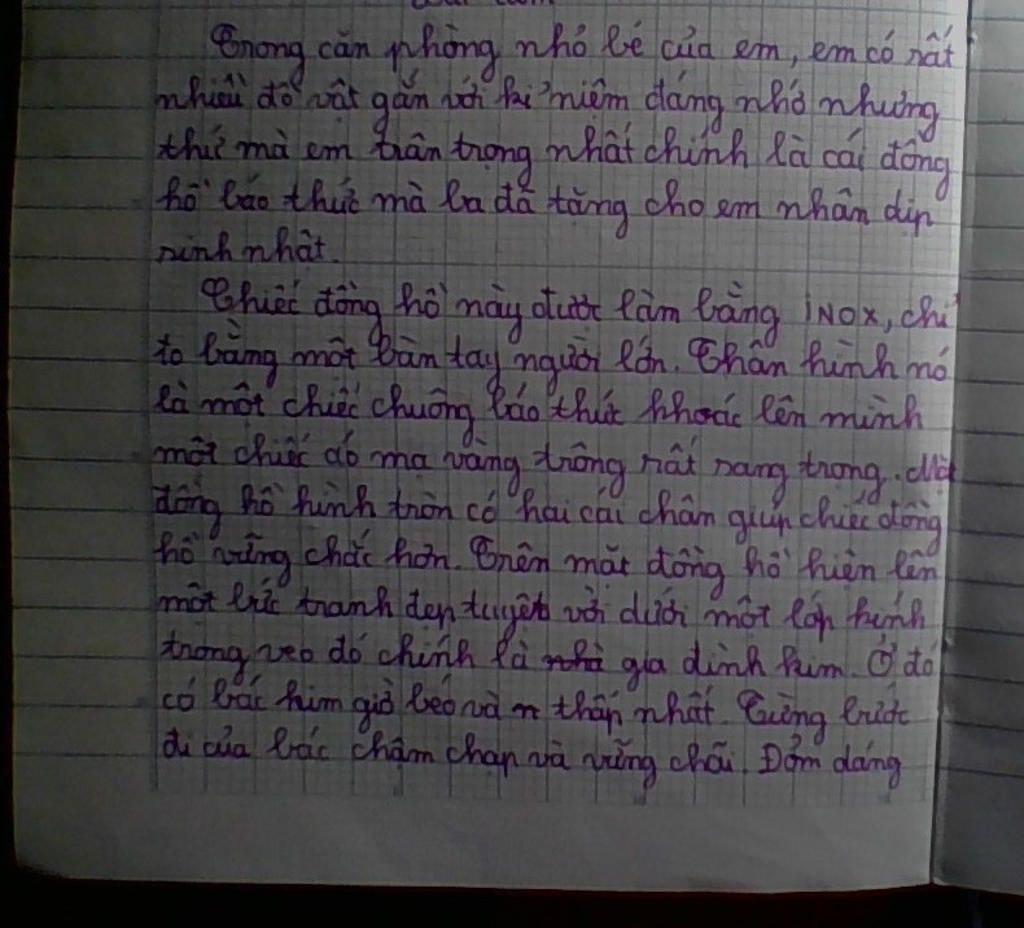 Trong căn phòng nhỏ bé của em, em có rất
nhiều đồ vật gắn với kỉ niệm đáng nhớ nhưng
thứ mà em trân trọng nhất chính là cái đồng
hồ báo thức mà ba đã tặng cho em nhân dịp
sinh nhật.
Chiếc đồng hồ này được làm bằng iNOX, chỉ
to bằng một bàn tay người lớn. Thân hình nó
là một chiếc chuông báo thức khoác lên mình
một chiếc áo mạ vàng trông rất sang trọng. Mặt
đồng hồ hình tròn có hai cái chân giúp chiếc đồng
hồ vững chắc hơn. Trên mặt đồng hồ hiện lên
một bức tranh đẹp tuyệt vời dưới một lớp kính
trong veo đó chính là gia đình kim. Ở đó
có bác kim giờ béo và thấp nhất. Từng bước
đi của bác chậm chạp và vững chãi. Đỏm dáng